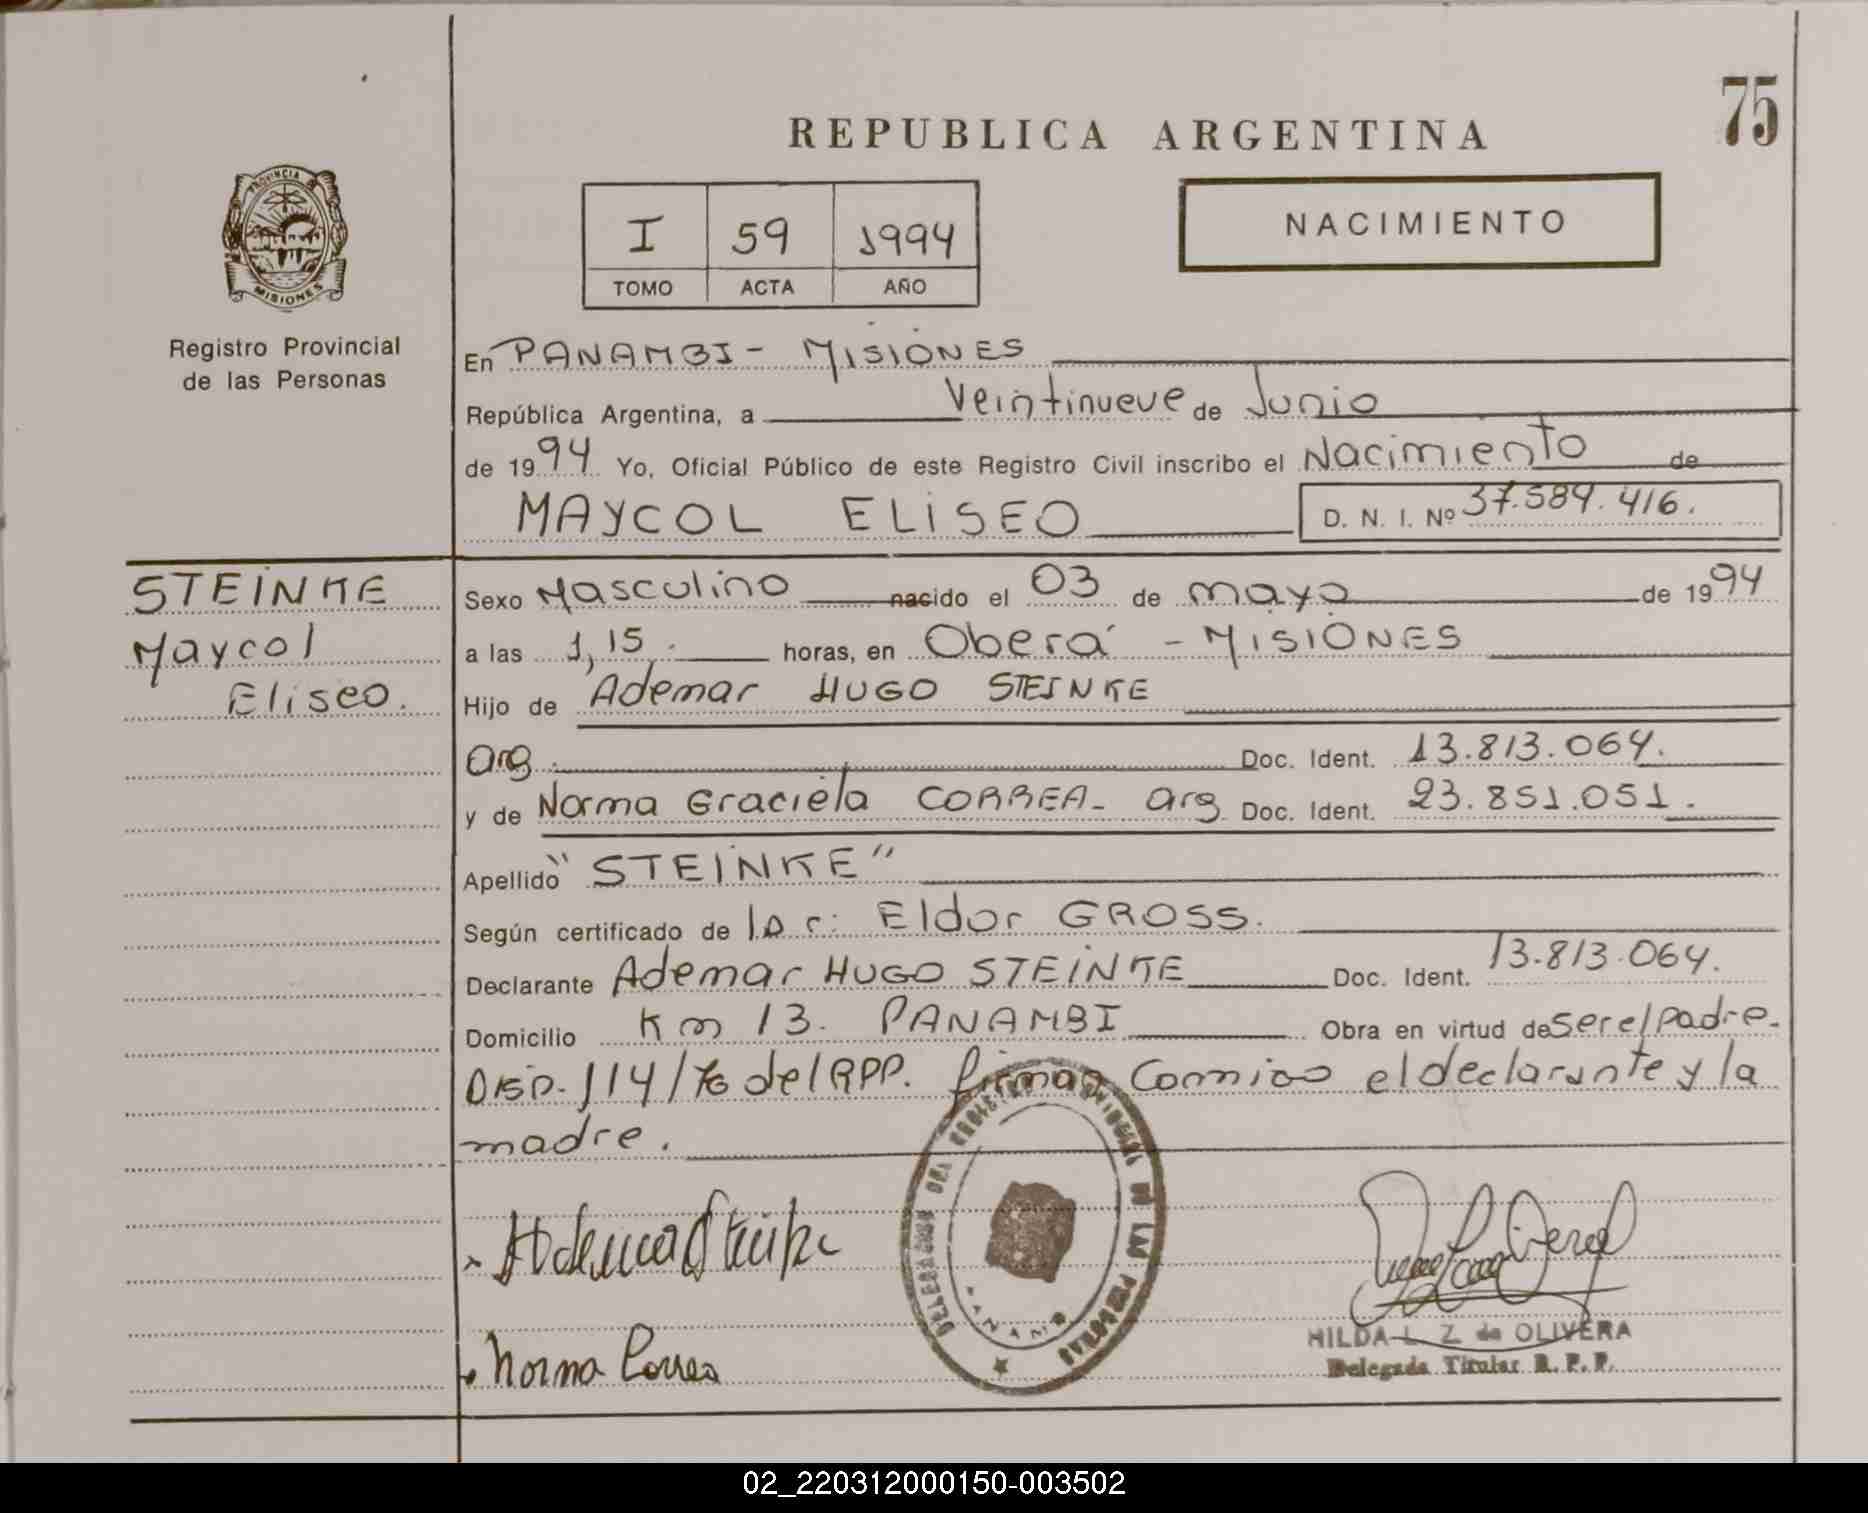 75
REPUBLICA ARGENTINA
PROVINCIA DE
MISIONES
I 59 1994
TOMO ACTA AÑO
NACIMIENTO
Registro Provincial
de las Personas
En PANAMBI - MISIONES
República Argentina, a Veintinueve de Junio
de 1994 Yo, Oficial Público de este Registro Civil inscribo el Nacimiento de
MAYCOL ELISEO D. N. I. Nº 37.589.416.
STEINKE
Maycol
Eliseo.
Sexo Masculino nacido el 03 de mayo de 1994
a las 1,15. horas, en Oberá - MISIONES
Hijo de Ademar HUGO STEINKE
arg. Doc. Ident. 13.813.064.
y de Norma Graciela CORREA - arg Doc. Ident. 23.851.051.
Apellido "STEINKE"
Según certificado de Eldor GROSS.
Declarante Ademar HUGO STEINKE Doc. Ident. 13.813.064.
Domicilio Km 13. PANAMBI Obra en virtud de ser el padre.
Disp. 114/76 del RPP. firman Conmigo el declarante y la
madre.
Ademar Steinke
Norma Correa
DELEGACION DEL REGISTRO PROVINCIAL DE LAS PERSONAS
PANAMBI
HILDA L. Z. de OLIVERA
Delegada Titular R. P. P.
02_220312000150-003502